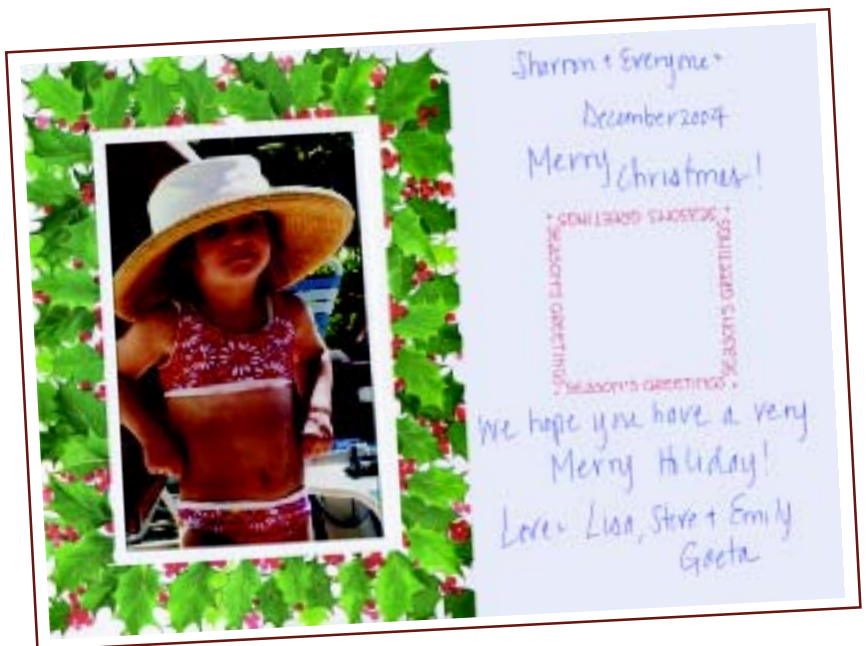 Sharron + Everyone -
December 2004
Merry Christmas!
• SEASON'S GREETINGS •
SEASON'S GREETINGS
SEASON'S GREETINGS
• SEASON'S GREETINGS •
We hope you have a very
Merry Holiday!
Love - Lisa, Steve + Emily
Gaeta